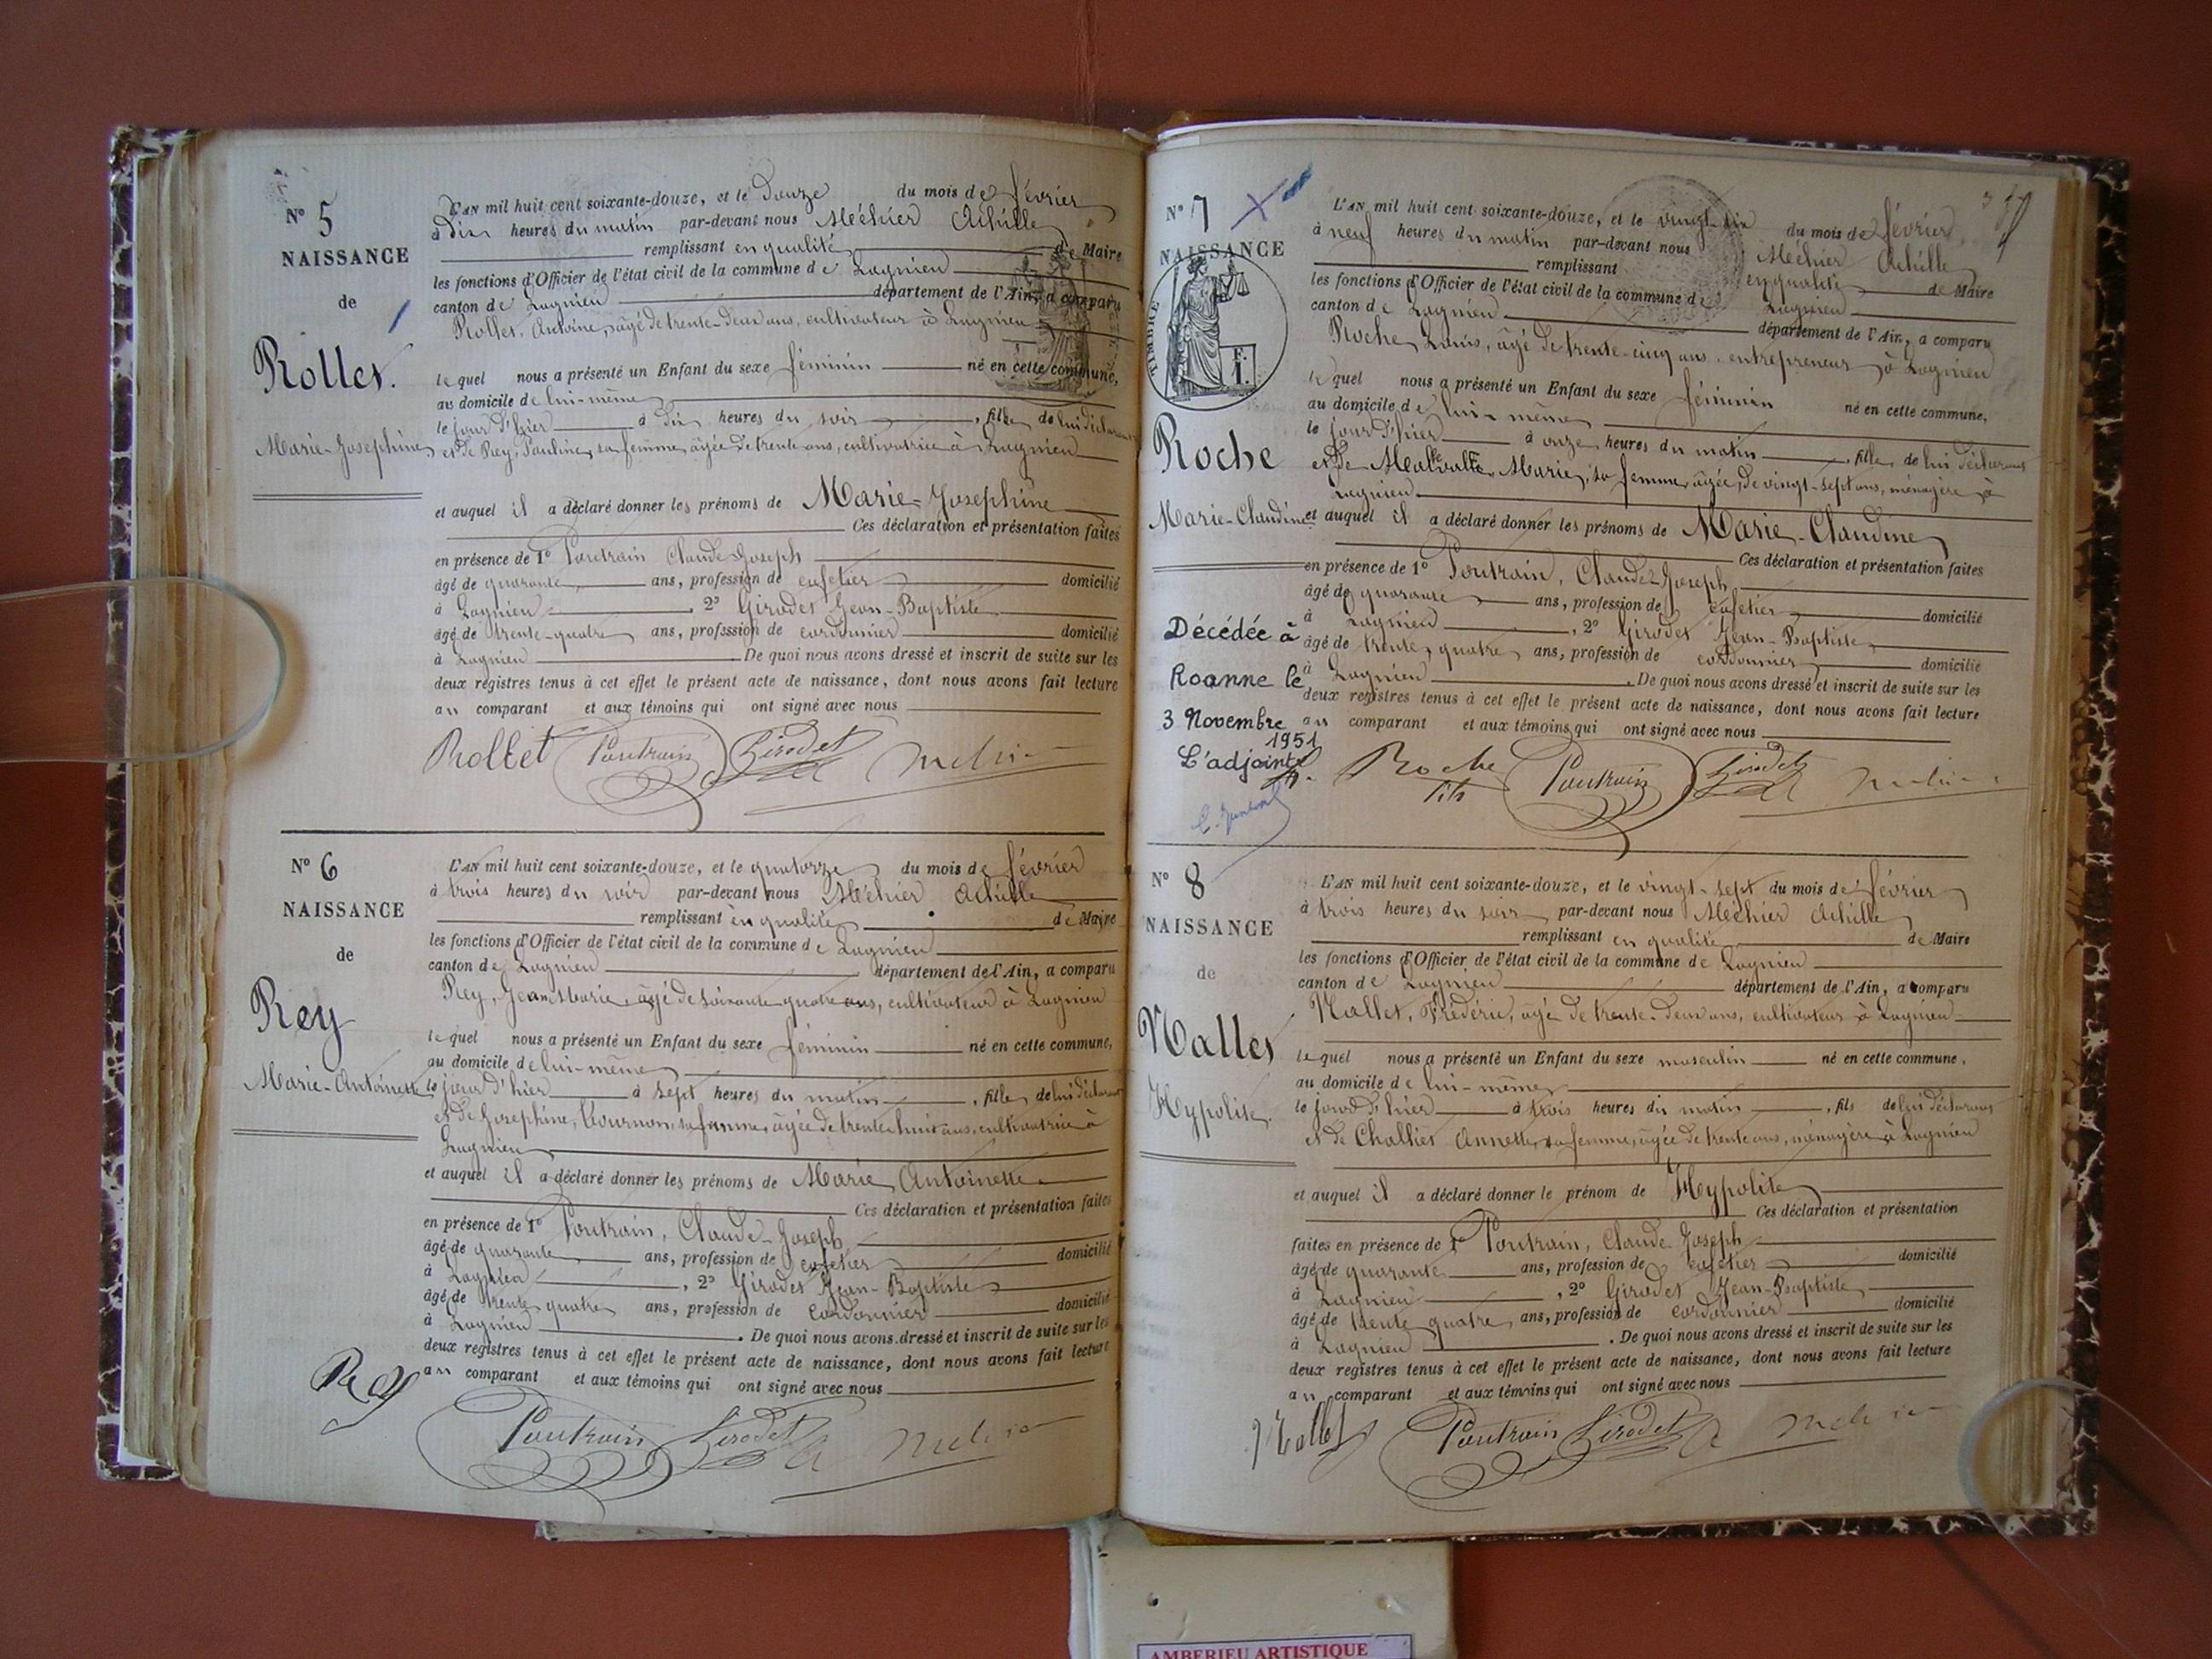 N° 5
NAISSANCE
de
Rollet.
Marie-Josephine
L'AN mil huit cent soixante-douze, et le Douze du mois de février
à dix heures du matin par-devant nous Méchier Achille
remplissant en qualité de Maire
les fonctions d'Officier de l'état civil de la commune de Lagnieu
canton de Lagnieu département de l'Ain, a comparu
Rollet, Antoine, âgé de trente-deux ans, cultivateur à Lagnieu
lequel nous a présenté un Enfant du sexe féminin né en cette commune,
au domicile de lui-même
le jour d'hier à dix heures du soir, fille de lui déclarant
et de Rey, Pauline, sa femme, âgée de trente ans, cultivatrice à Lagnieu
et auquel il a déclaré donner les prénoms de Marie-Josephine
Ces déclaration et présentation faites
en présence de 1° Poutrain Claude-Joseph
âgé de quarante ans, profession de cafetier domicilié
à Lagnieu, 2° Girodet Jean-Baptiste
âgé de trente-quatre ans, profession de cordonnier domicilié
à Lagnieu De quoi nous avons dressé et inscrit de suite sur les
deux registres tenus à cet effet le présent acte de naissance, dont nous avons fait lecture
au comparant et aux témoins qui ont signé avec nous
Rollet Poutrain Girodet Méchier
N° 6
NAISSANCE
de
Rey
Marie-Antoinette
L'AN mil huit cent soixante-douze, et le quatorze du mois de février
à trois heures du soir par-devant nous Méchier Achille
remplissant en qualité de Maire
les fonctions d'Officier de l'état civil de la commune de Lagnieu
canton de Lagnieu département de l'Ain, a comparu
Rey, Jean Marie, âgé de soixante quatre ans, cultivateur à Lagnieu
lequel nous a présenté un Enfant du sexe féminin né en cette commune,
au domicile de lui-même
le jour d'hier à sept heures du matin, fille de lui déclarant
et de Josephine, Tournon, sa femme, âgée de trente huit ans, cultivatrice à
Lagnieu
et auquel il a déclaré donner les prénoms de Marie Antoinette
Ces déclaration et présentation faites
en présence de 1° Poutrain, Claude-Joseph
âgé de quarante ans, profession de cafetier domicilié
à Lagnieu, 2° Girodet Jean-Baptiste
âgé de trente quatre ans, profession de cordonnier domicilié
à Lagnieu. De quoi nous avons dressé et inscrit de suite sur les
deux registres tenus à cet effet le présent acte de naissance, dont nous avons fait lecture
au comparant et aux témoins qui ont signé avec nous
Rey Poutrain Girodet Méchier
N° 7
NAISSANCE
TIMBRE
Roche
Marie-Claudine
Décédée à
Roanne le
3 Novembre
1951
L'adjoint
L'AN mil huit cent soixante-douze, et le vingt-six du mois de février
à neuf heures du matin par-devant nous Méchier Achille
remplissant en qualité de Maire
les fonctions d'Officier de l'état civil de la commune de Lagnieu
canton de Lagnieu département de l'Ain, a comparu
Roche Louis, âgé de trente-cinq ans, entrepreneur à Lagnieu
lequel nous a présenté un Enfant du sexe féminin né en cette commune,
au domicile de lui-même
le jour d'hier à onze heures du matin, fille de lui déclarant
et de Marie, sa femme, âgée de vingt-sept ans, ménagère à
Lagnieu
et auquel il a déclaré donner les prénoms de Marie-Claudine
Ces déclaration et présentation faites
en présence de 1° Poutrain, Claude-Joseph
âgé de quarante ans, profession de cafetier domicilié
à Lagnieu, 2° Girodet Jean-Baptiste
âgé de trente quatre ans, profession de cordonnier domicilié
à Lagnieu. De quoi nous avons dressé et inscrit de suite sur les
deux registres tenus à cet effet le présent acte de naissance, dont nous avons fait lecture
au comparant et aux témoins qui ont signé avec nous
Roche Poutrain Girodet Méchier
N° 8
NAISSANCE
de
Nallet
Hypolite
L'AN mil huit cent soixante-douze, et le vingt-sept du mois de février
à trois heures du soir par-devant nous Méchier Achille
remplissant en qualité de Maire
les fonctions d'Officier de l'état civil de la commune de Lagnieu
canton de Lagnieu département de l'Ain, a comparu
Nallet, Frédéric, âgé de trente-deux ans, cultivateur à Lagnieu
lequel nous a présenté un Enfant du sexe masculin né en cette commune,
au domicile de lui-même
le jour d'hier à trois heures du matin, fils de lui déclarant
et de Challiet Annette, sa femme, âgée de trente ans, ménagère à Lagnieu
et auquel il a déclaré donner le prénom de Hypolite
Ces déclaration et présentation
faites en présence de 1° Poutrain, Claude Joseph
âgé de quarante ans, profession de cafetier domicilié
à Lagnieu, 2° Girodet Jean-Baptiste
âgé de trente quatre ans, profession de cordonnier domicilié
à Lagnieu. De quoi nous avons dressé et inscrit de suite sur les
deux registres tenus à cet effet le présent acte de naissance, dont nous avons fait lecture
au comparant et aux témoins qui ont signé avec nous
Nallet Poutrain Girodet Méchier
AMBERIEU ARTISTIQUE